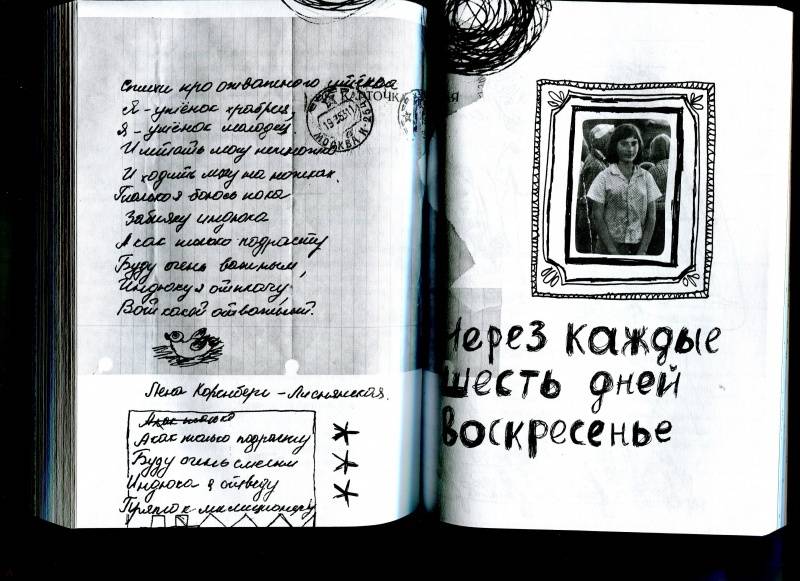 Стихи про отважного утёнка
Я - утёнок храбрец,
Я - утёнок молодец.
И летать могу немножко
И ходить могу на ножках.
Только я боюсь пока
Забияку индюка
А как только подрасту
Буду очень важным,
Индюку я отомщу
Вот какой отважный!
КАРТОЧКА
МОСКВА
Лена Коренберг - Лиснянская.
А как только
А как только подрасту
Буду очень смелым
Индюка я отведу
Прямо к милиционеру
Через каждые
шесть дней
воскресенье